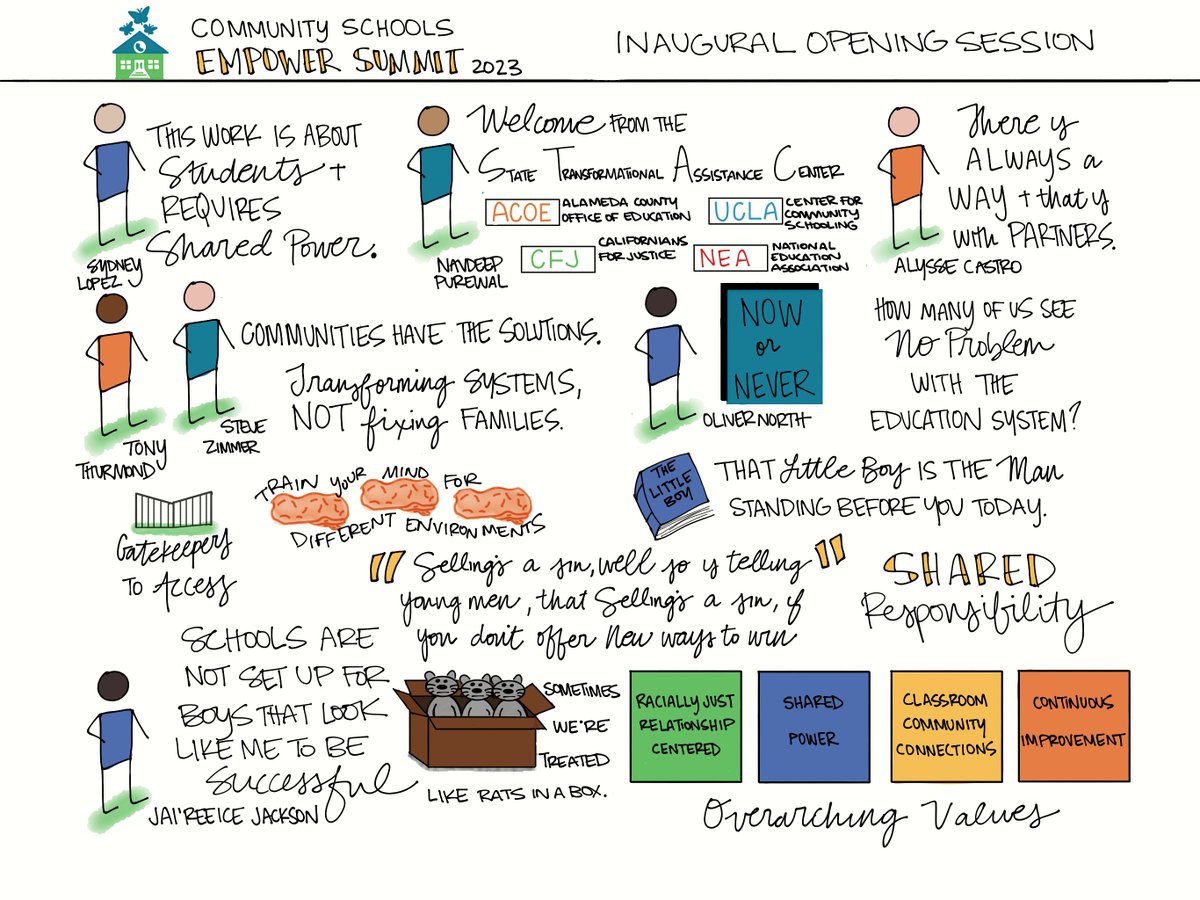 COMMUNITY SCHOOLS
EMPOWER SUMMIT 2023
INAUGURAL OPENING SESSION
THIS WORK IS ABOUT
Students +
REQUIRES
Shared Power.
SYDNEY
LOPEZ
Welcome FROM THE
STATE TRANSFORMATIONAL ASSISTANCE CENTER
ACOE
ALAMEDA COUNTY
OFFICE OF EDUCATION
UCLA
CENTER FOR
COMMUNITY
SCHOOLING
CFJ
CALIFORNIANS
FOR JUSTICE
NEA
NATIONAL
EDUCATION
ASSOCIATION
NAVDEEP
PUREWAL
There is
ALWAYS a
WAY + that is
with PARTNERS.
ALYSSE CASTRO
COMMUNITIES HAVE THE SOLUTIONS.
Transforming SYSTEMS,
NOT fixing FAMILIES.
TONY
THURMOND
STEVE
ZIMMER
NOW
or
NEVER
OLIVER NORTH
HOW MANY OF US SEE
No Problem
WITH THE
EDUCATION SYSTEM?
Gatekeepers
TO Access
TRAIN YOUR MIND FOR
DIFFERENT ENVIRONMENTS
THE
LITTLE
BOY
THAT Little Boy IS THE Man
STANDING BEFORE YOU TODAY.
"Selling's a sin, well so is telling"
young men, that Selling's a sin, if
you don't offer new ways to win
SHARED
Responsibility
SCHOOLS ARE
NOT SET UP FOR
BOYS THAT LOOK
LIKE ME TO BE
Successful
JAI'REEICE JACKSON
SOMETIMES
WE'RE
TREATED
LIKE RATS IN A BOX.
RACIALLY JUST
RELATIONSHIP
CENTERED
SHARED
POWER
CLASSROOM
COMMUNITY
CONNECTIONS
CONTINUOUS
IMPROVEMENT
Overarching Values